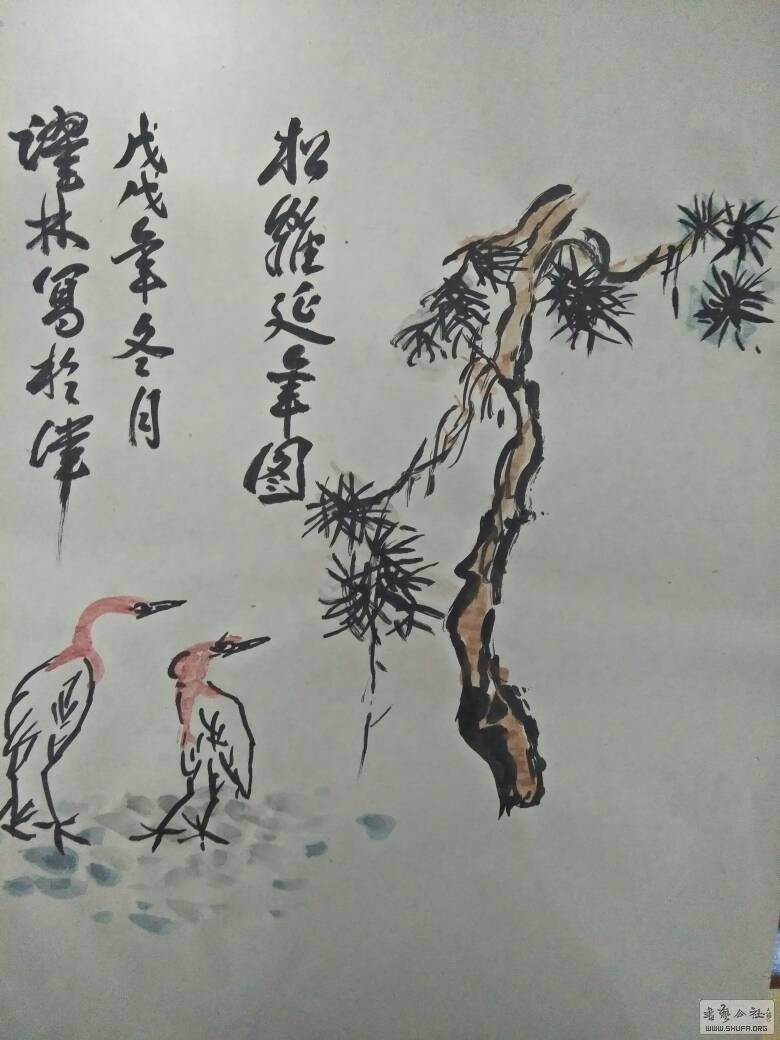 松鶴延年图
戊戌年冬月
林寫於津
书艺公社
WWW.SHUFA.ORG